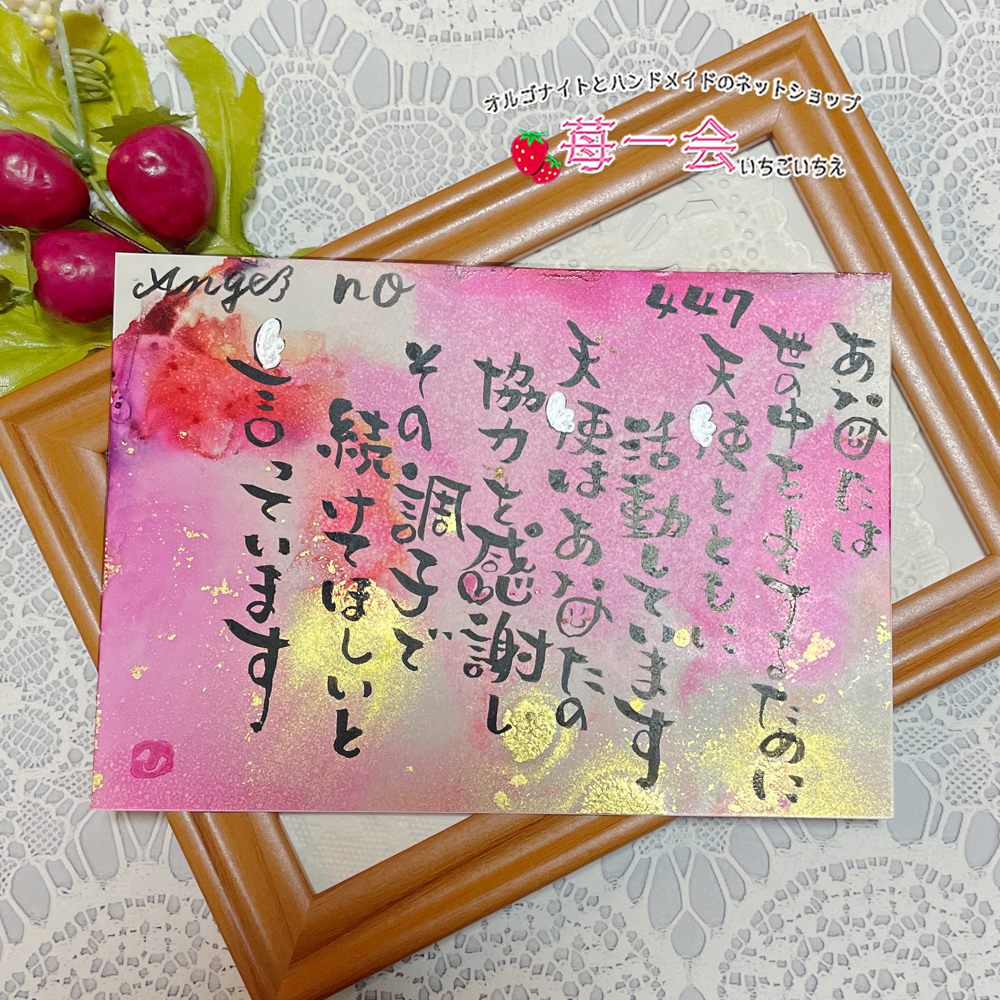 オルゴナイトとハンドメイドのネットショップ
苺一会
いちごいちえ
Angel no
447
あなたは
世の中をよくするために
天使とともに
活動しています
天使はあなたの
協力を感謝し
その調子で
続けてほしいと
言っています
ひ